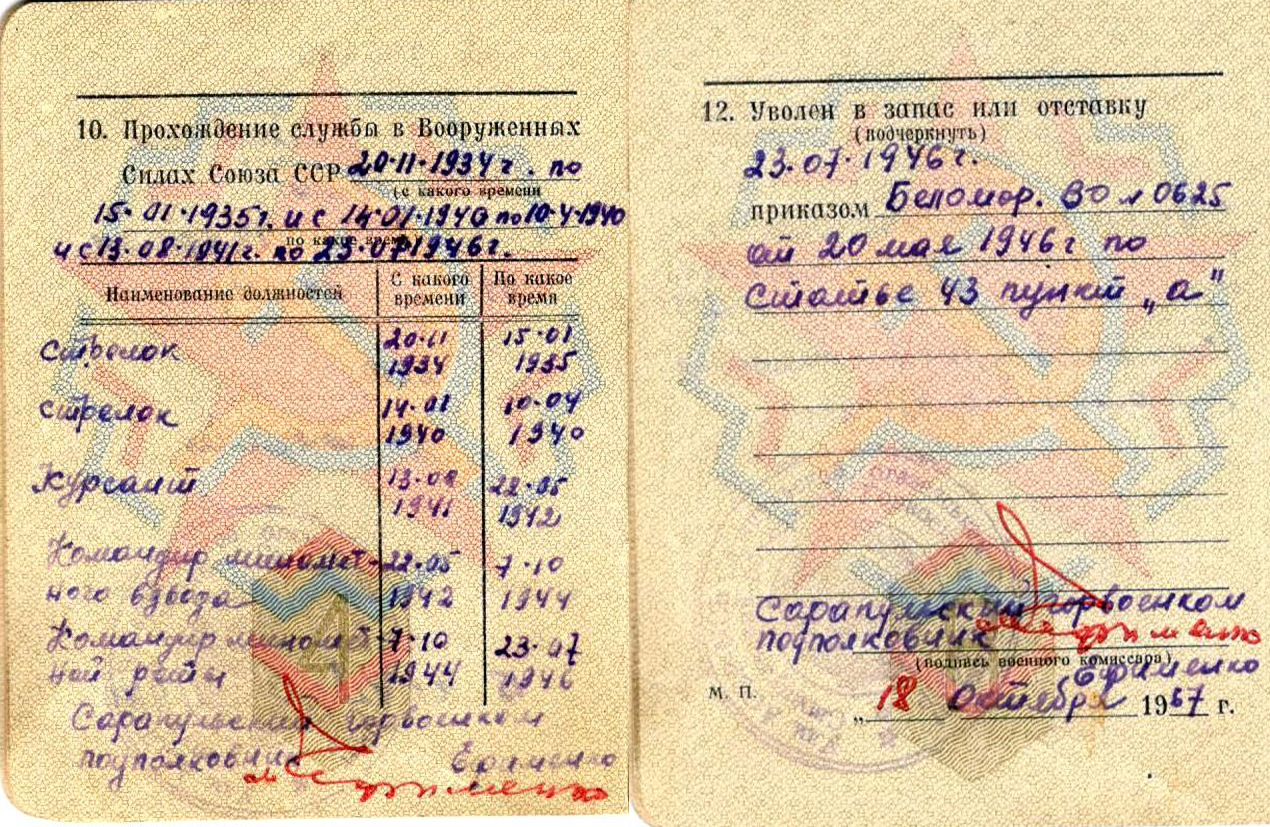 10. Прохождение службы в Вооруженных
Силах Союза ССР 20·11·1934 г. по
(с какого времени
15·01·1935 г. и с 14·01·1940 по 10·4·1940
по какое время)
и с 13·08·1941 г. по 23·07·1946 г.
Наименование должностей
С какого времени
По какое время
Стрелок 20·11 1934 15·01 1935
стрелок 14·01 1940 10·04 1940
Курсант 13·08 1941 22·05 1942
Командир миномет- 22·05 7·10
ного взвода 1942 1944
Командир миномет- 7·10 23·07
ной роты 1944 1946
Сарапульский горвоенком
подполковник Ефименко
12. Уволен в запас или отставку
(подчеркнуть)
23·07·1946 г.
приказом Беломор. ВО № 0625
от 20 мая 1946 г по
Статье 43 пункт „а"
Сарапульский горвоенком
подполковник
(подпись военного комиссара)
Ефименко
М. П.
„18 Октября 1967 г.